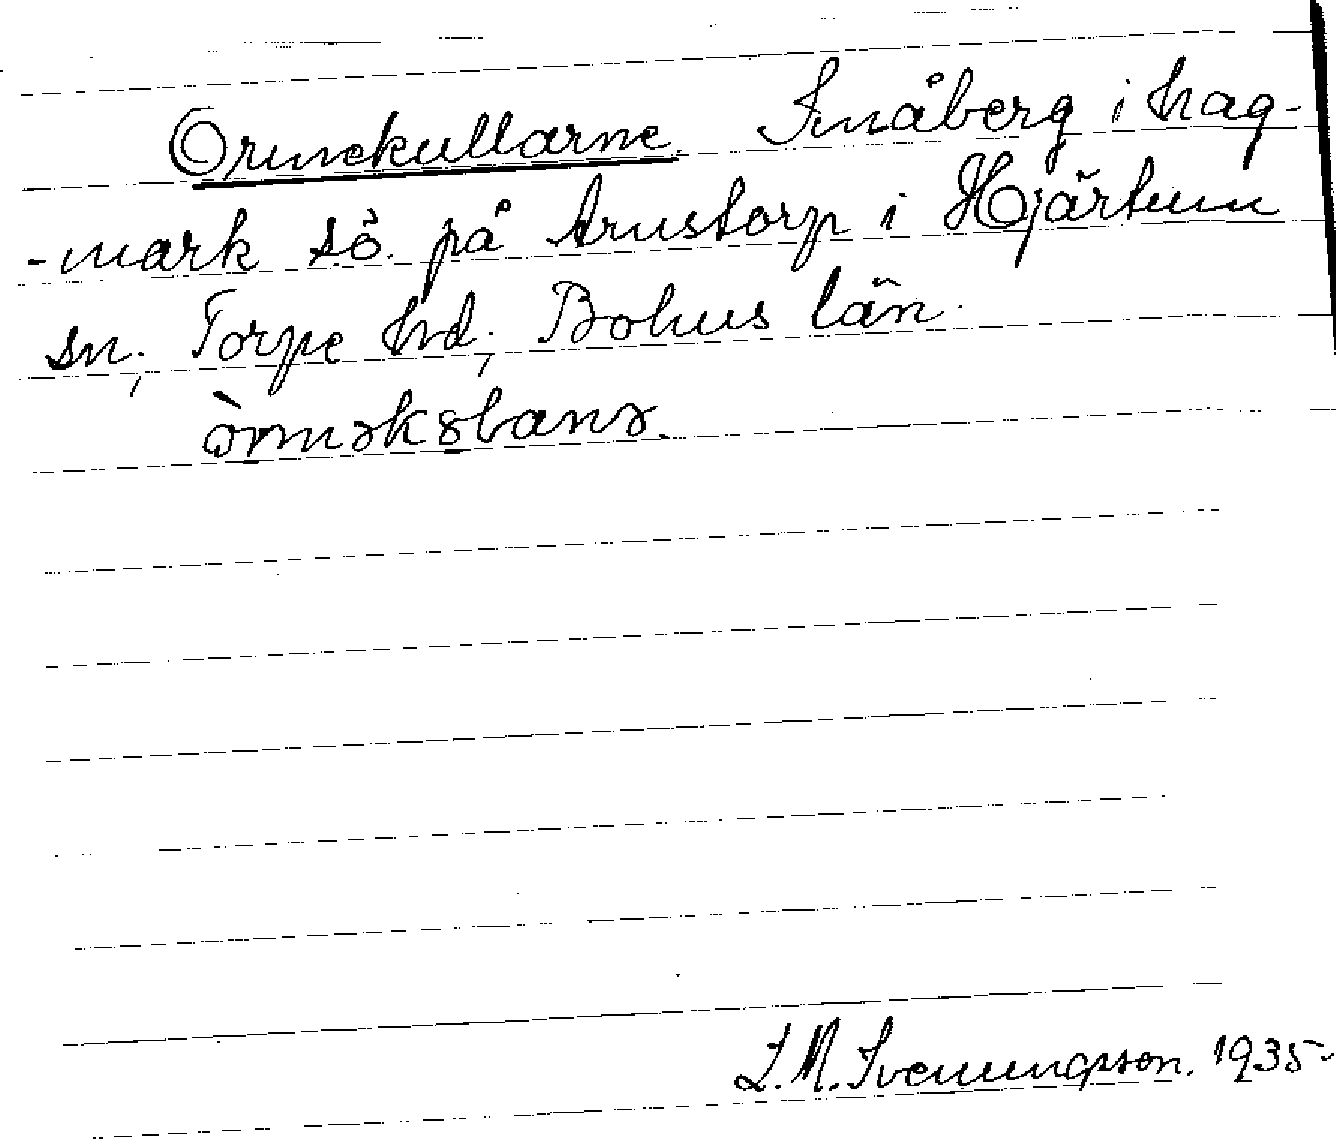 Ormekullarne. Småberg i hag-
-mark sö. på Arnstorp i Hjärtum
sn; Torpe hd; Bohus län.
L. M. Svenungsson. 1935